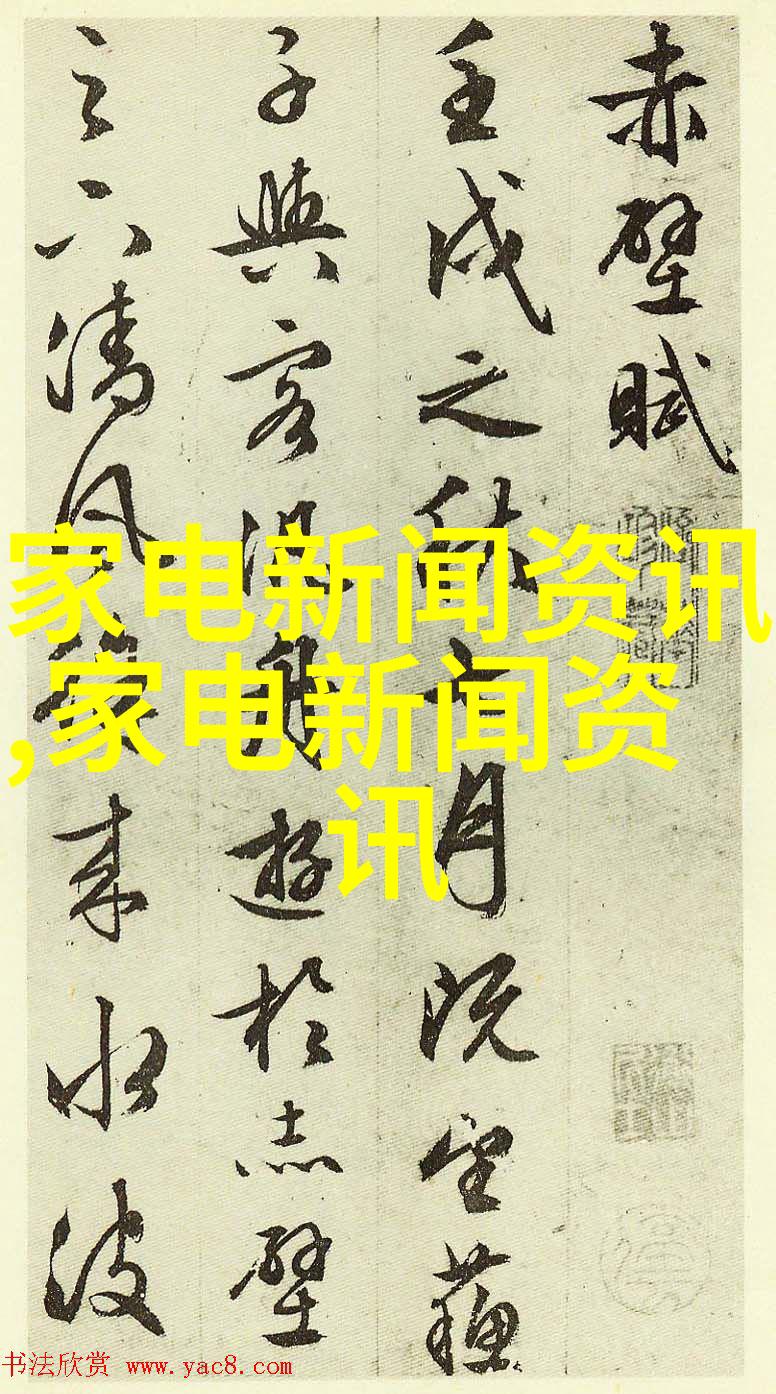 赤壁賦
壬戌之秋七月既望蘇
子與客泛舟遊於赤壁
之下清風徐來水波
家电新闻资讯
,家电新闻资
讯
书法欣赏 www.yac8.com